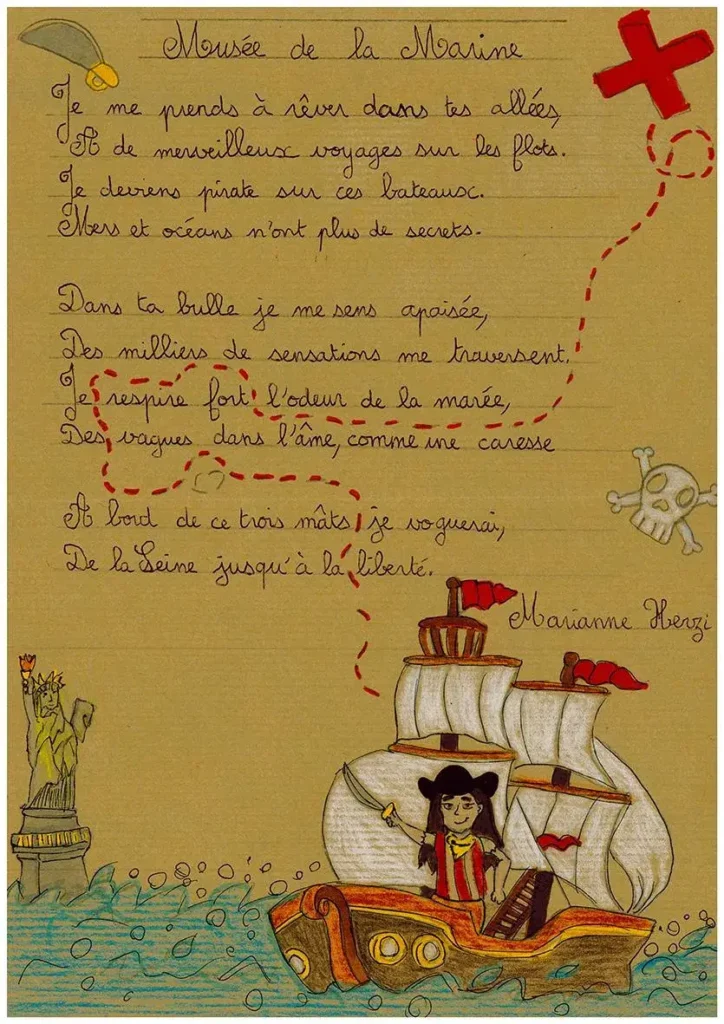 Musée de la Marine
Je me prends à rêver dans tes allées,
A de merveilleux voyages sur les flots.
Je deviens pirate sur ces bateaux.
Mers et océans n'ont plus de secrets.
Dans ta bulle je me sens apaisée,
Des milliers de sensations me traversent.
Je respire fort l'odeur de la marée,
Des vagues dans l'âme, comme une caresse
A bord de ce trois mâts je voguerai,
De la Seine jusqu'à la liberté.
Marianne Herzi